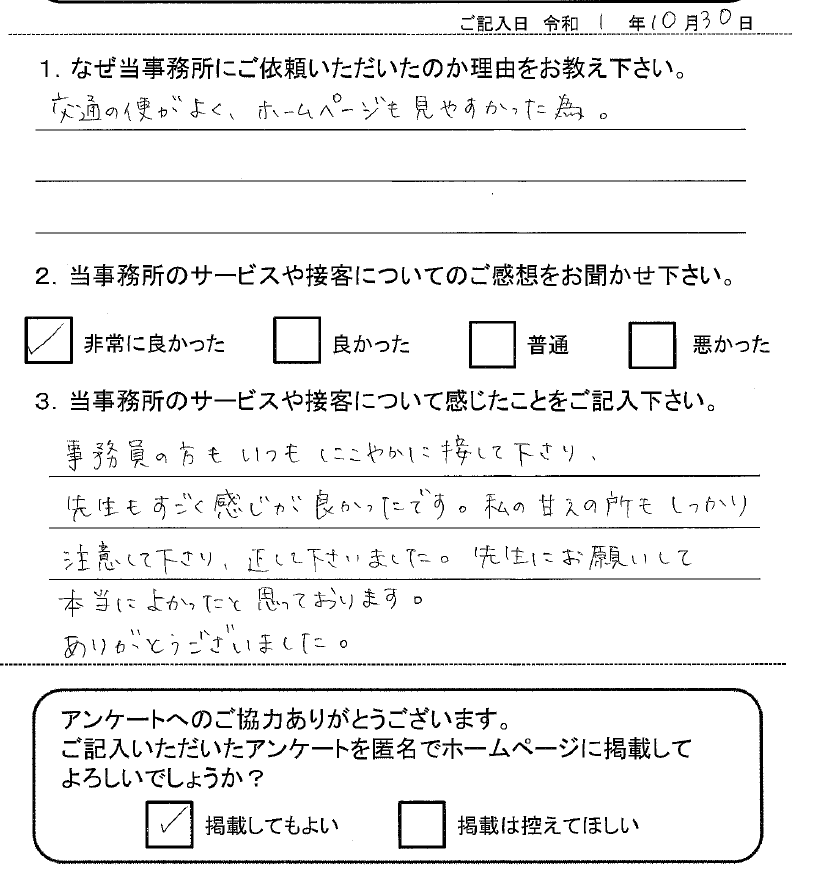 ご記入日 令和 1 年10月30日
1. なぜ当事務所にご依頼いただいたのか理由をお教え下さい。
交通の便がよく、ホームページも見やすかった為。
2. 当事務所のサービスや接客についてのご感想をお聞かせ下さい。
非常に良かった 良かった 普通 悪かった
3. 当事務所のサービスや接客について感じたことをご記入下さい。
事務員の方も いつも にこやかに 接して下さり、
先生もすごく感じが良かったです。私の甘えの所もしっかり
注意して下さり、正して下さいました。先生にお願いして
本当によかったと思っております。
ありがとうございました。
アンケートへのご協力ありがとうございます。
ご記入いただいたアンケートを匿名でホームページに掲載して
よろしいでしょうか？
掲載してもよい 掲載は控えてほしい